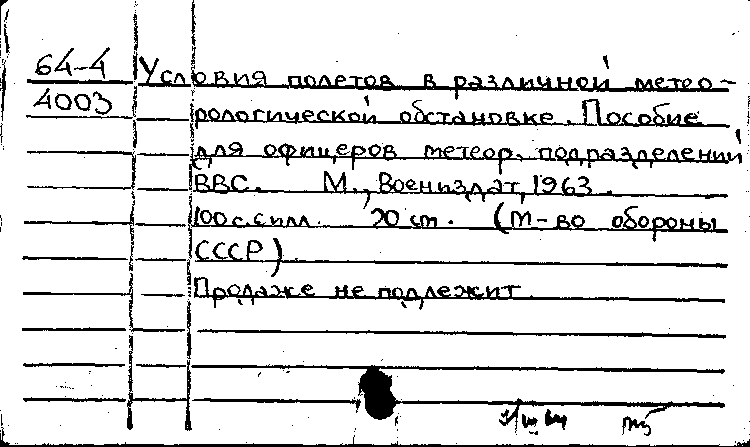 64-4 Условия полетов в различной метео-
4003 рологической обстановке. Пособие
для офицеров метеор. подразделений
ВВС. М., Воениздат, 1963.
100 с. с илл. 20 см. (М-во обороны
СССР)
Продаже не подлежит